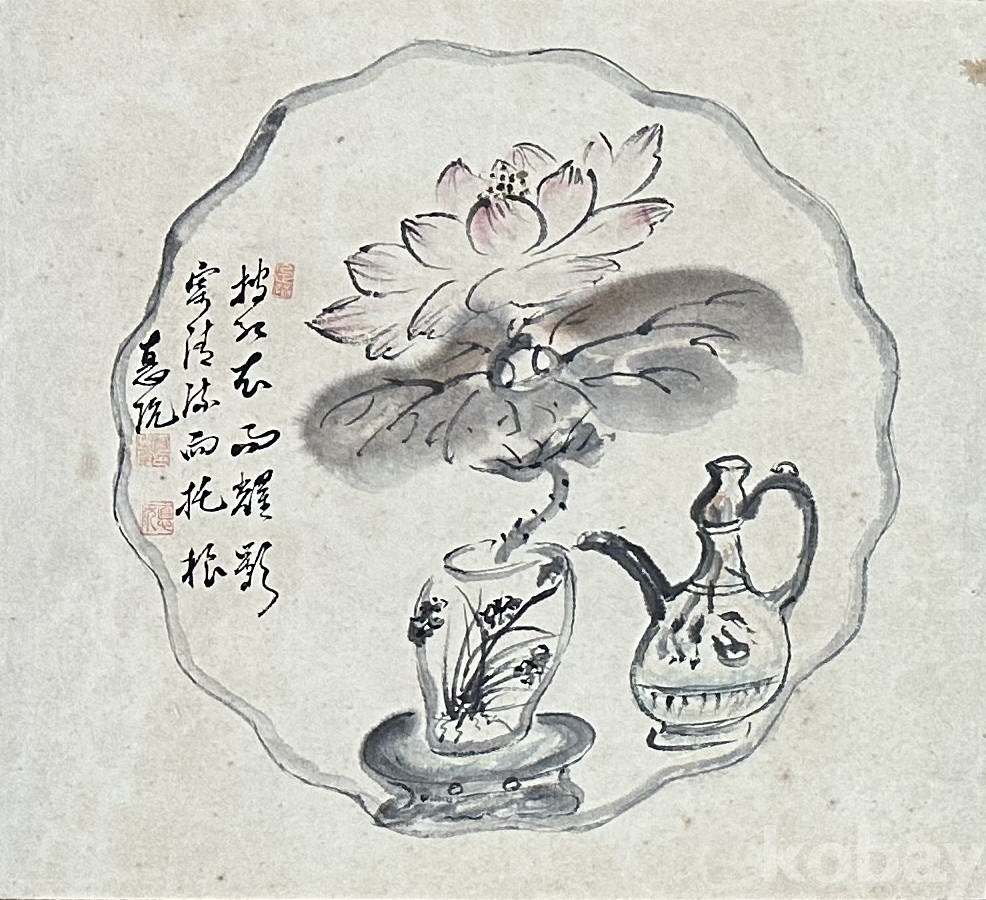 披紅衣而耀影
寄清流而托根
kobay